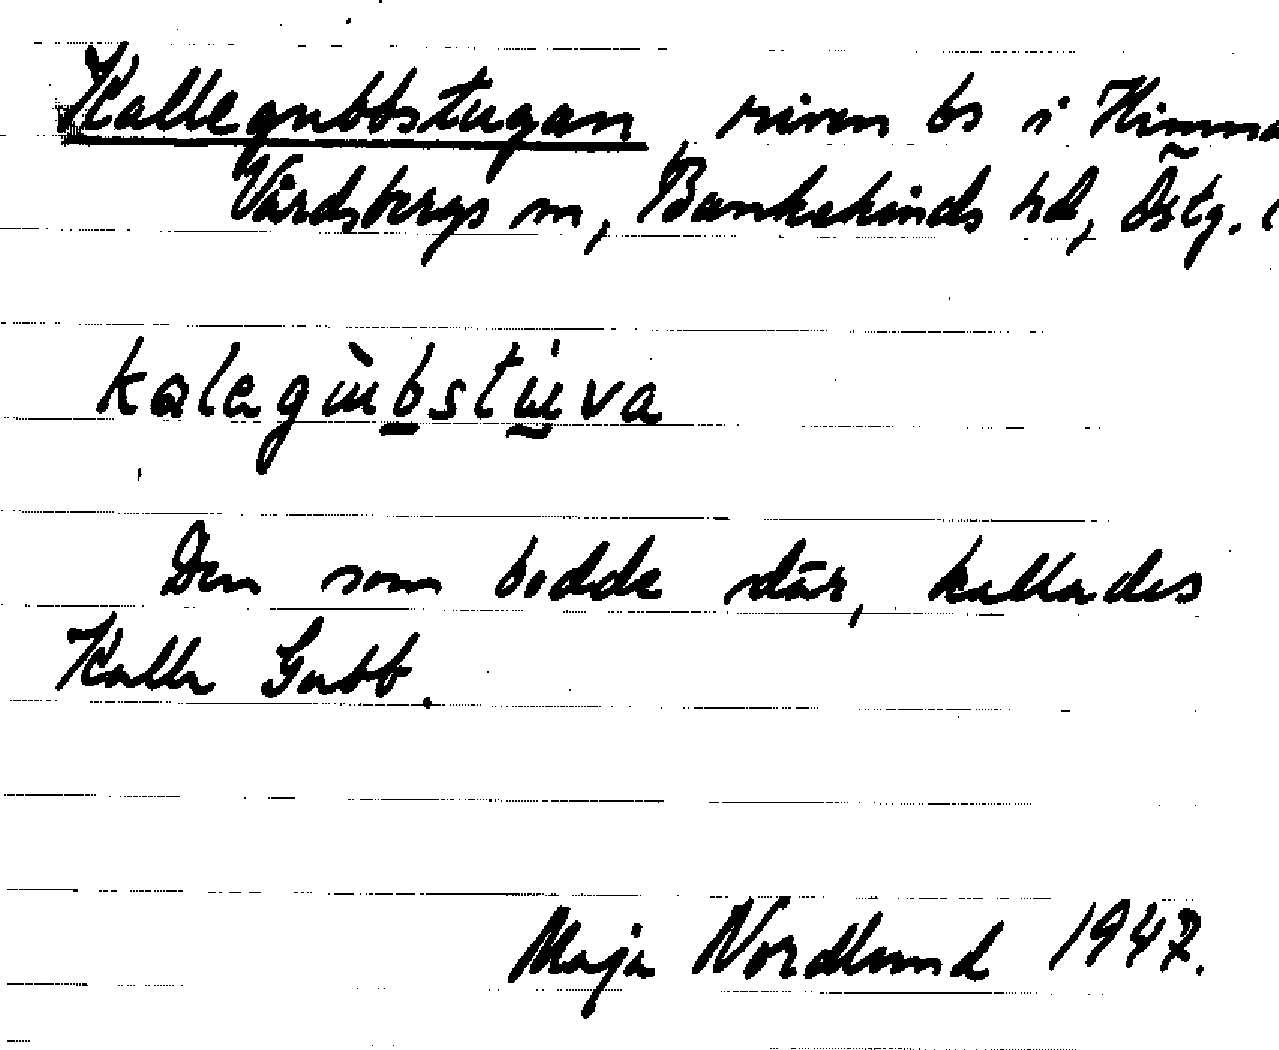 Kallegubbstugan, riven bs i Himma
Vårdsbergs sn, Bankekinds hd, Östg.
kalegùbstu̇va
Den som bodde där, kallades
Kalle Gubb.
Maja Nordlund 1947.